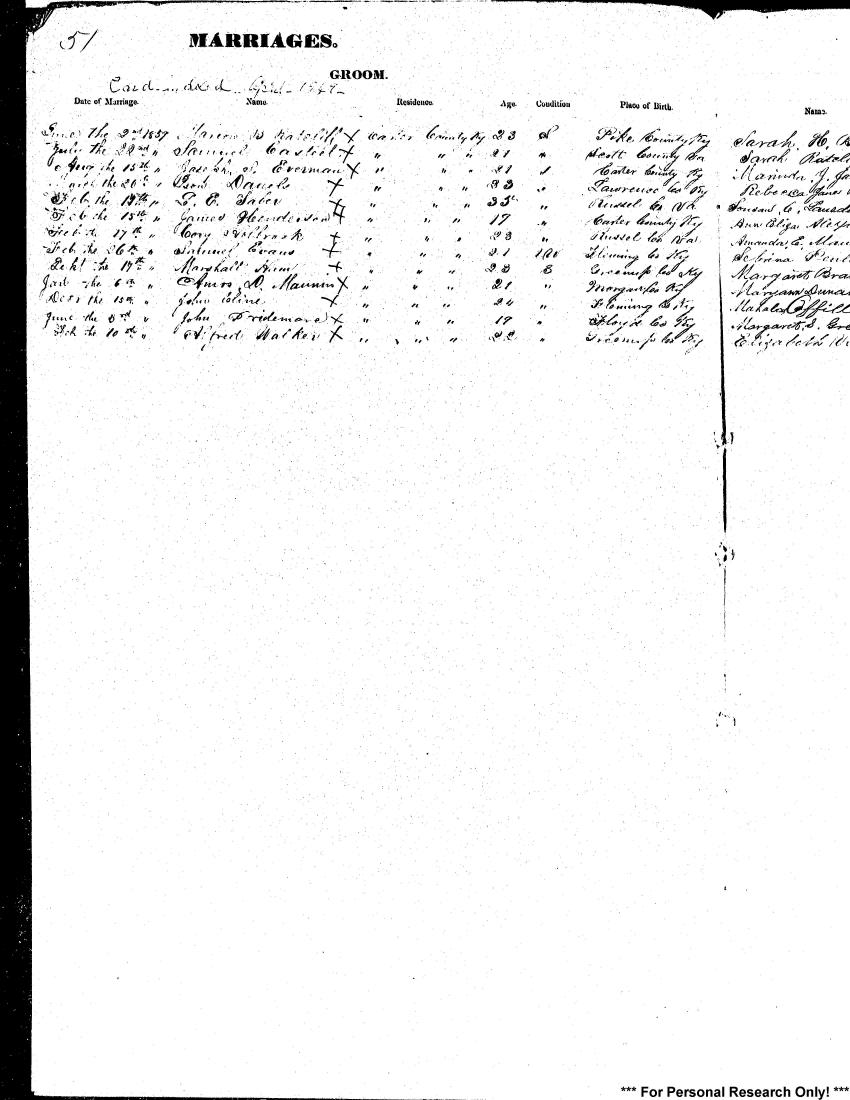 51
MARRIAGES.
GROOM.
Card indexed April 1949
Date of Marriage. Name. Residence. Age. Condition Place of Birth. Name.
June the 2nd 1857 B Ratcliff X Carter County Ky 23 S Pike County Ky Sarah H.
July the 22nd " Samuel Castiel X " " " 21 " Scott County Va Sarah
Aug the 13th " S. Everman X " " " 21 S Carter County Ky Marinda J.
the 20th " Daniels X " " " 23 " Lawrence Co Ky Rebecca Jane
Feb the 19th " E. X " " " 35 " Russel Co Va C.
Feb the 15th " James Henderson X " " " 17 " Carter County Ky Ann Eliza
Feb the 17th " Holbrook X " " " 23 " Russel Co Va Amanda E.
Feb the 26th " Samuel Evans X " " " 21 Fleming Co Ky Sebrina
the 17th " Marshall X " " " 23 Greenup Co Ky Margaret
Jan the 6th " Amos D. Mannin X " " " 21 " Morgan Co Ky Maryann Duncan
the " John Cline X " " " 24 " Fleming Co Ky Mahala Offill
June the 3rd " John Pridemore X " " " 19 " Floyd Co Ky Margaret S.
Feb the 10th " Alfred Walker X " " " 22 " Greenup Co Ky Elizabeth
*** For Personal Research Only! ***